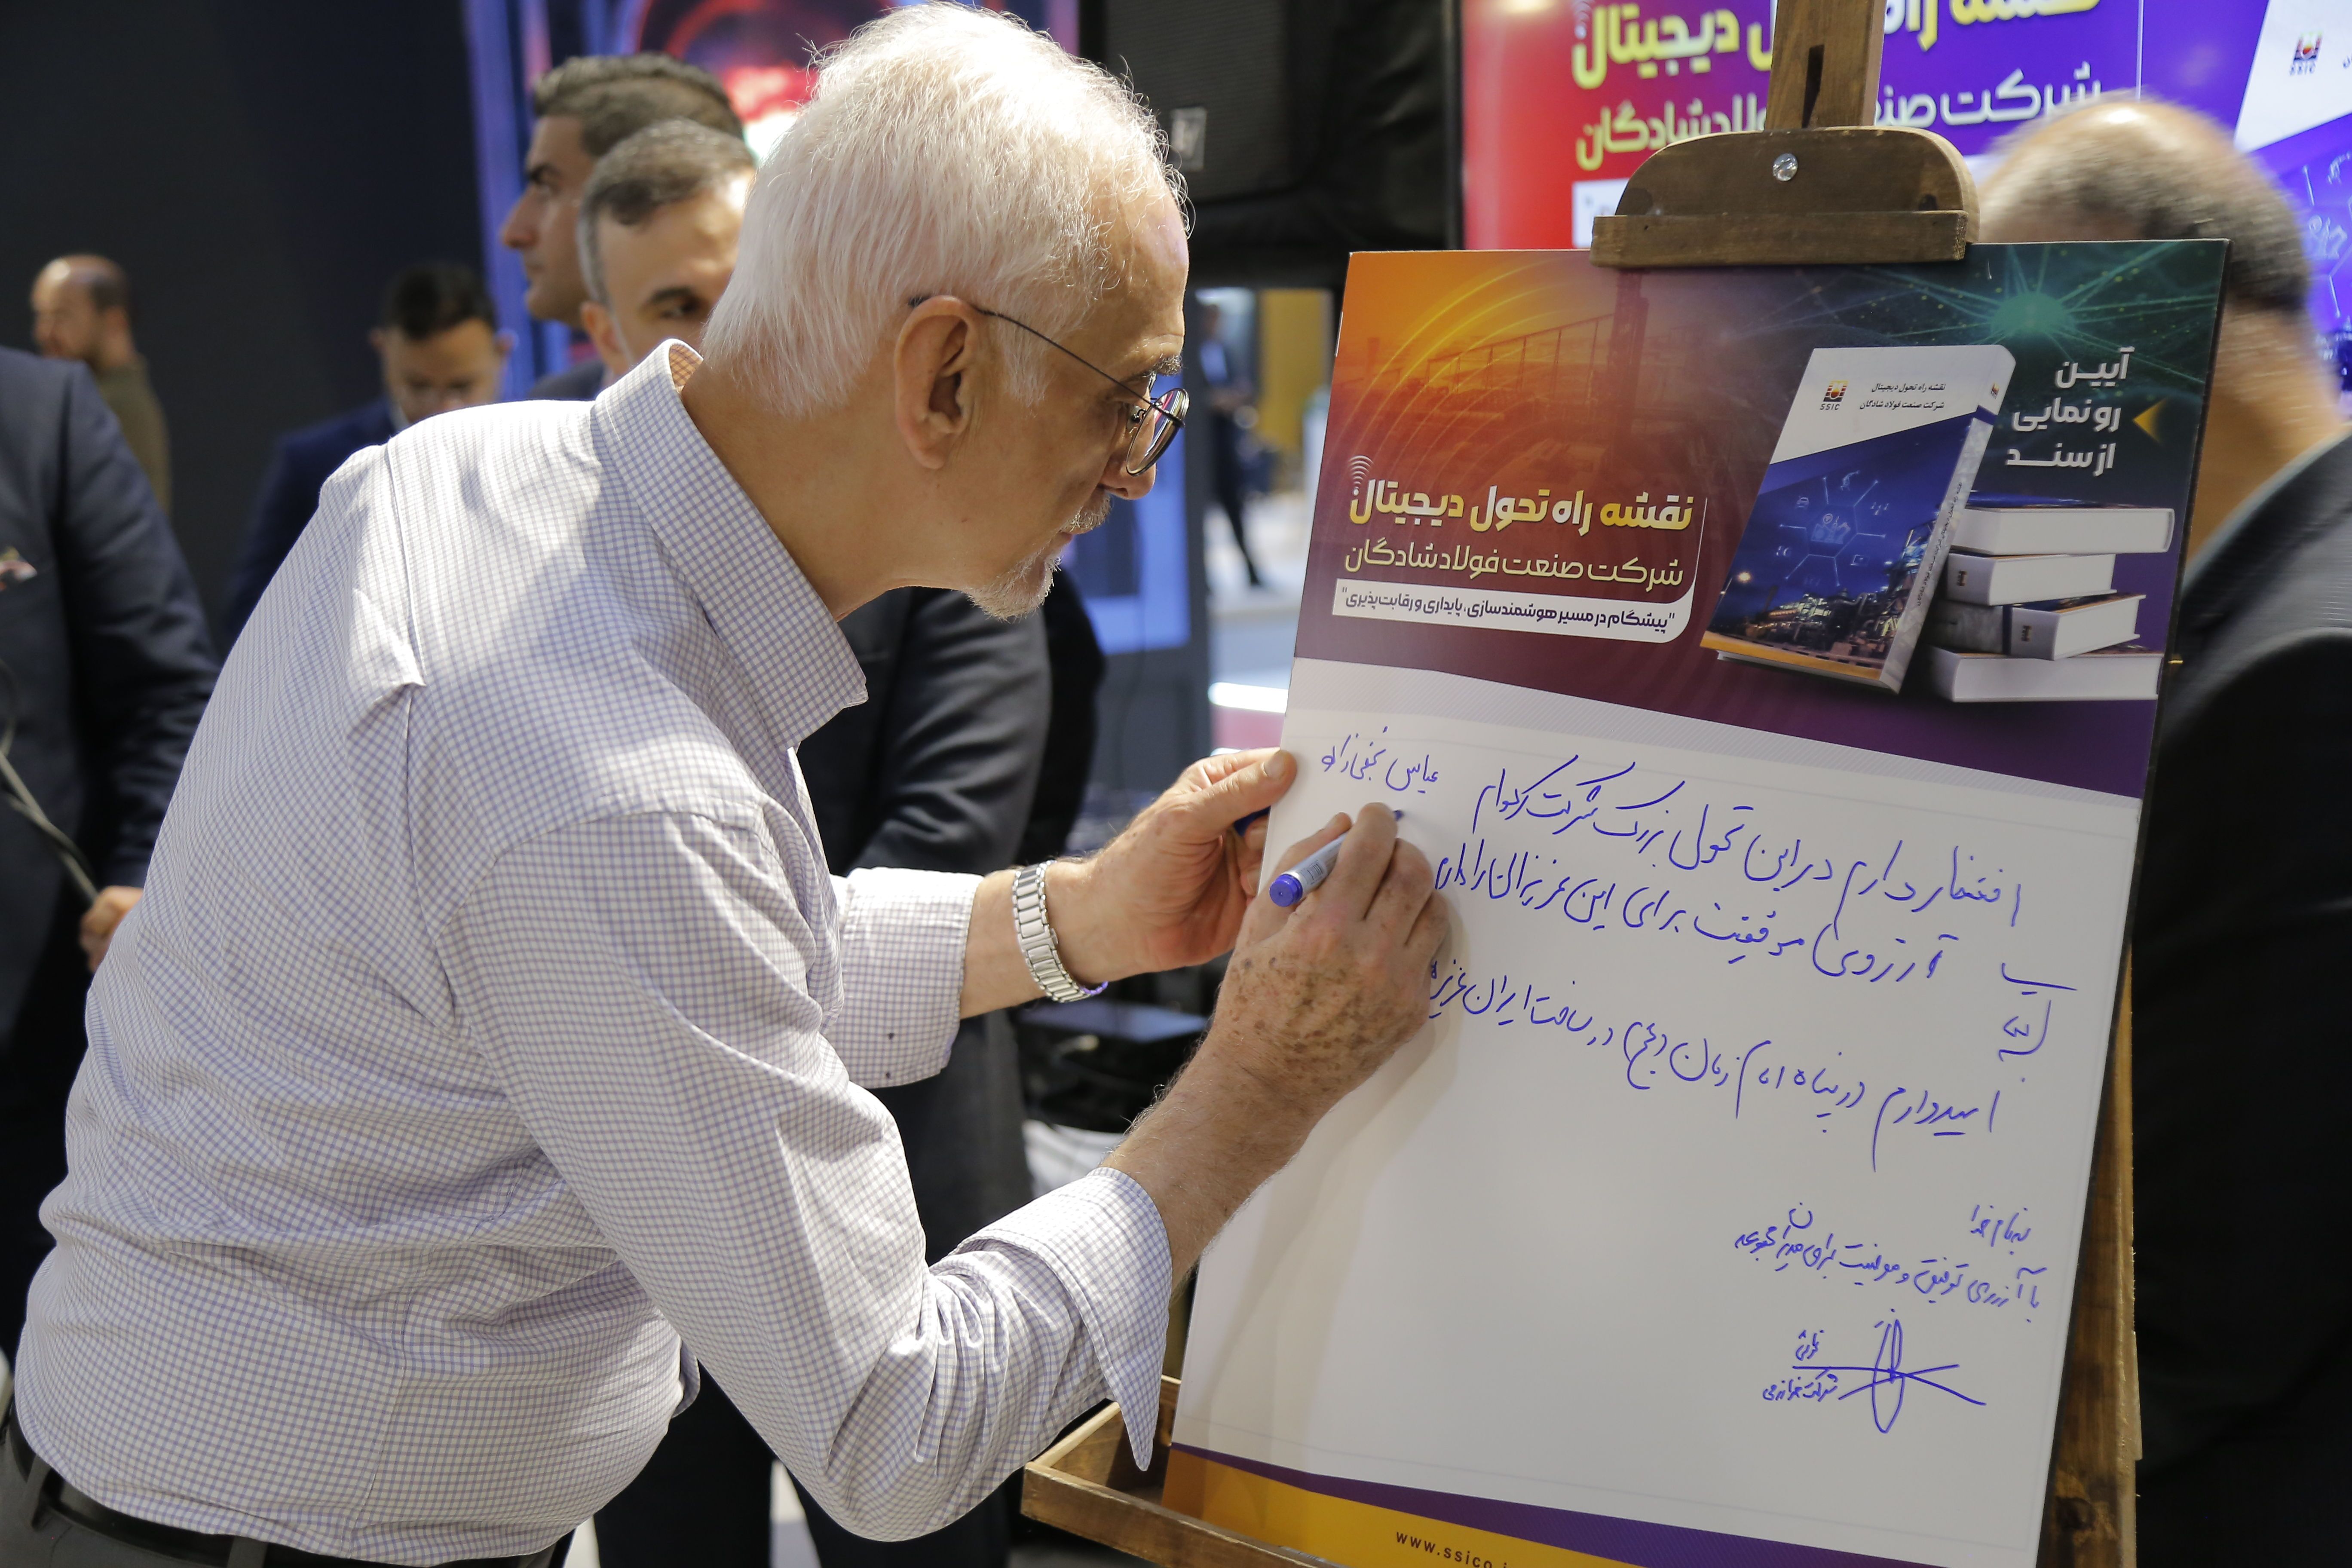 نقشه راه تحول دیجیتال
شرکت صنعت فولاد شادگان
SSIC
آیین
رونمایی
از سند
نقشه راه تحول دیجیتال
شرکت صنعت فولاد شادگان
SSIC
نقشه راه تحول دیجیتال
شرکت صنعت فولاد شادگان
"پیشگام در مسیر هوشمندسازی، پایداری و رقابت‌پذیری"
افتخار دارم در این تحول بزرگ شرکت
عباس نجفی‌زاده
آرزوی موفقیت برای این عزیزان را دارم
امیدوارم در پناه امام زمان (عج) در ساخت ایران عزیز
به نام خدا
با آرزوی توفیق و موفقیت برای مدیران مجموعه
شرکت خوارزمی
www.ssico.